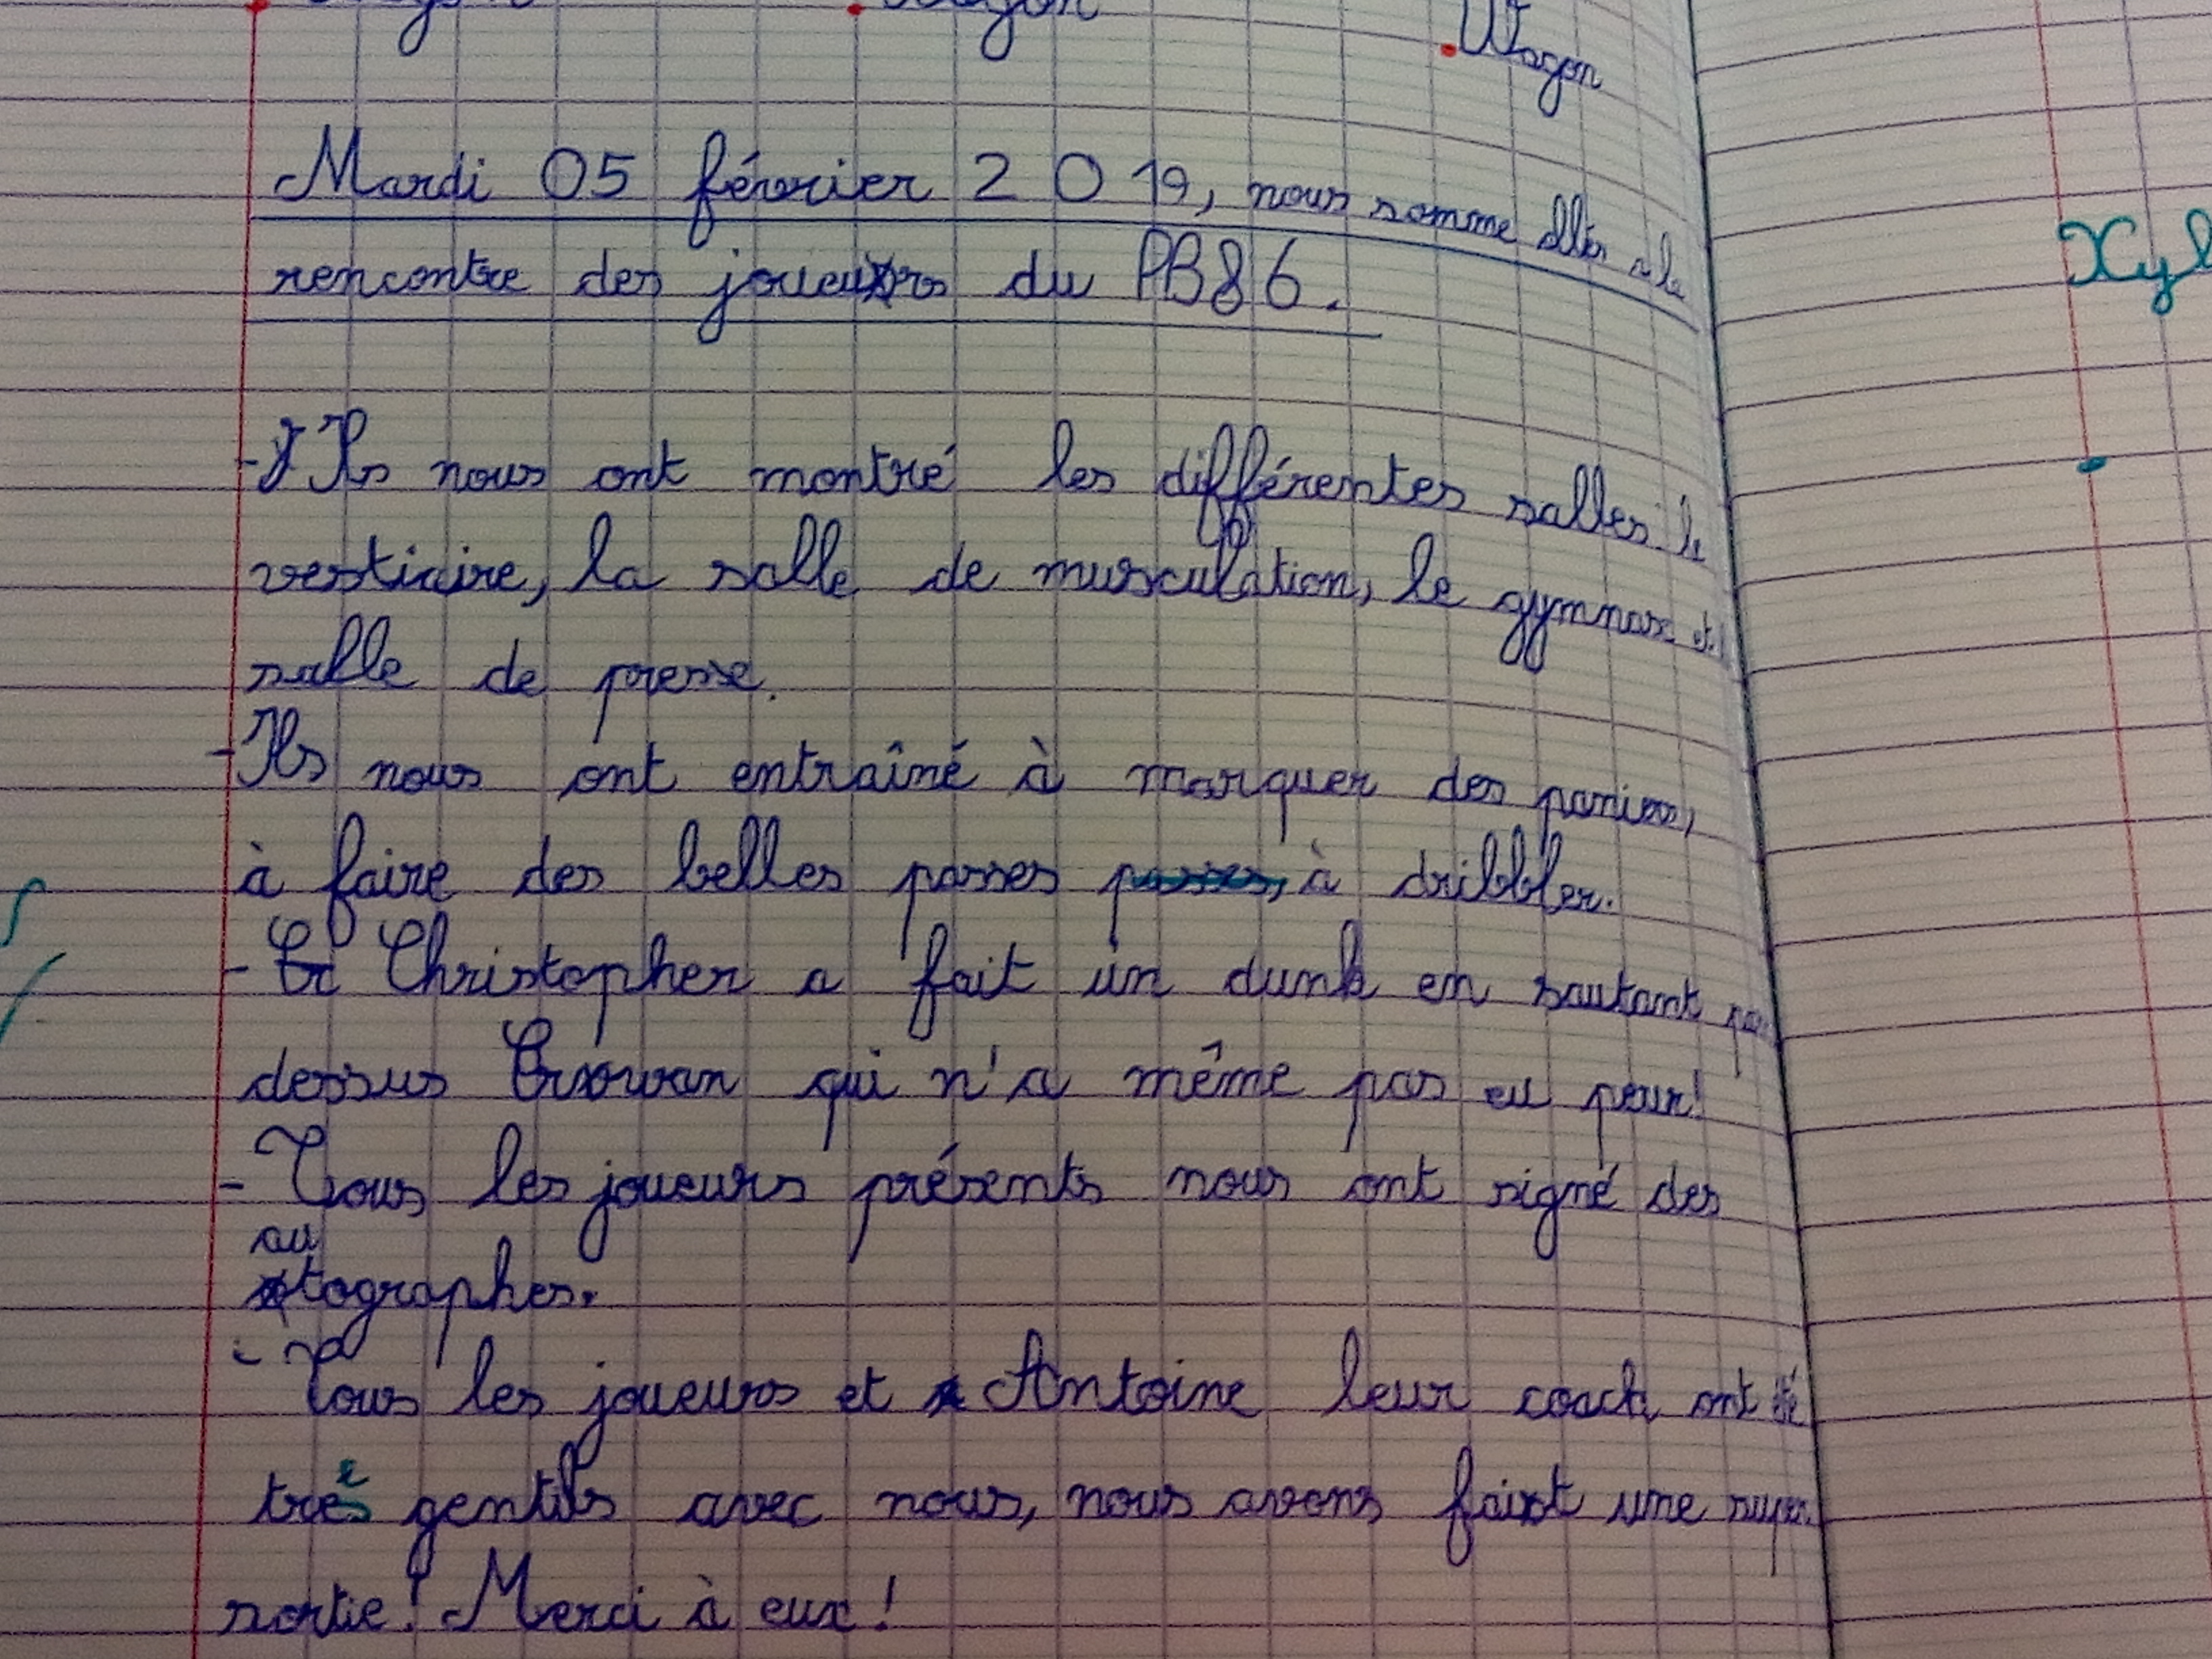 Wagon
Mardi 05 février 2019, nous somme allés à la
rencontre des joueurs du PB86.
- Ils nous ont montré les différentes salles le
vestiaire, la salle de musculation, le gymnase et
salle de presse.
- Ils nous ont entraîné à marquer des paniers,
à faire des belles passes passes, à dribbler.
- Cr Christopher a fait un dunk en sautant par
dessus qui n'a même pas eu peur!
- Tous les joueurs présents nous ont signé des
autographes.
- Tous les joueurs et Antoine leur coach ont été
très gentils avec nous, nous avons fait une super
sortie! Merci à eux!
Xyl